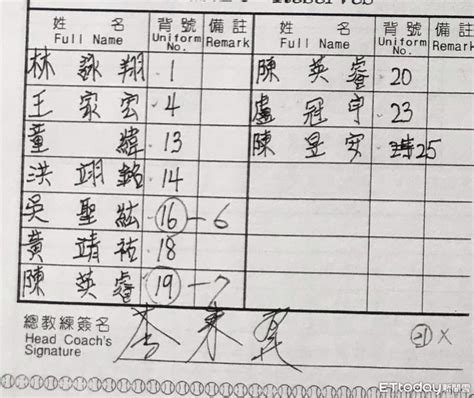 Reserves
姓 名 背號 備註 姓 名 背號 備註
Full Name Uniform No. Remark Full Name Uniform No. Remark
林詠翔 1 陳英睿 20
王家宏 4 盧冠宇 23
童緯 13 陳昱安 25
洪翊銘 14
吳聖紘 16 - 6
黃靖祐 18
陳英睿 19 - 7
總教練簽名
Head Coach's
Signature
21 X
ETtoday新聞雲